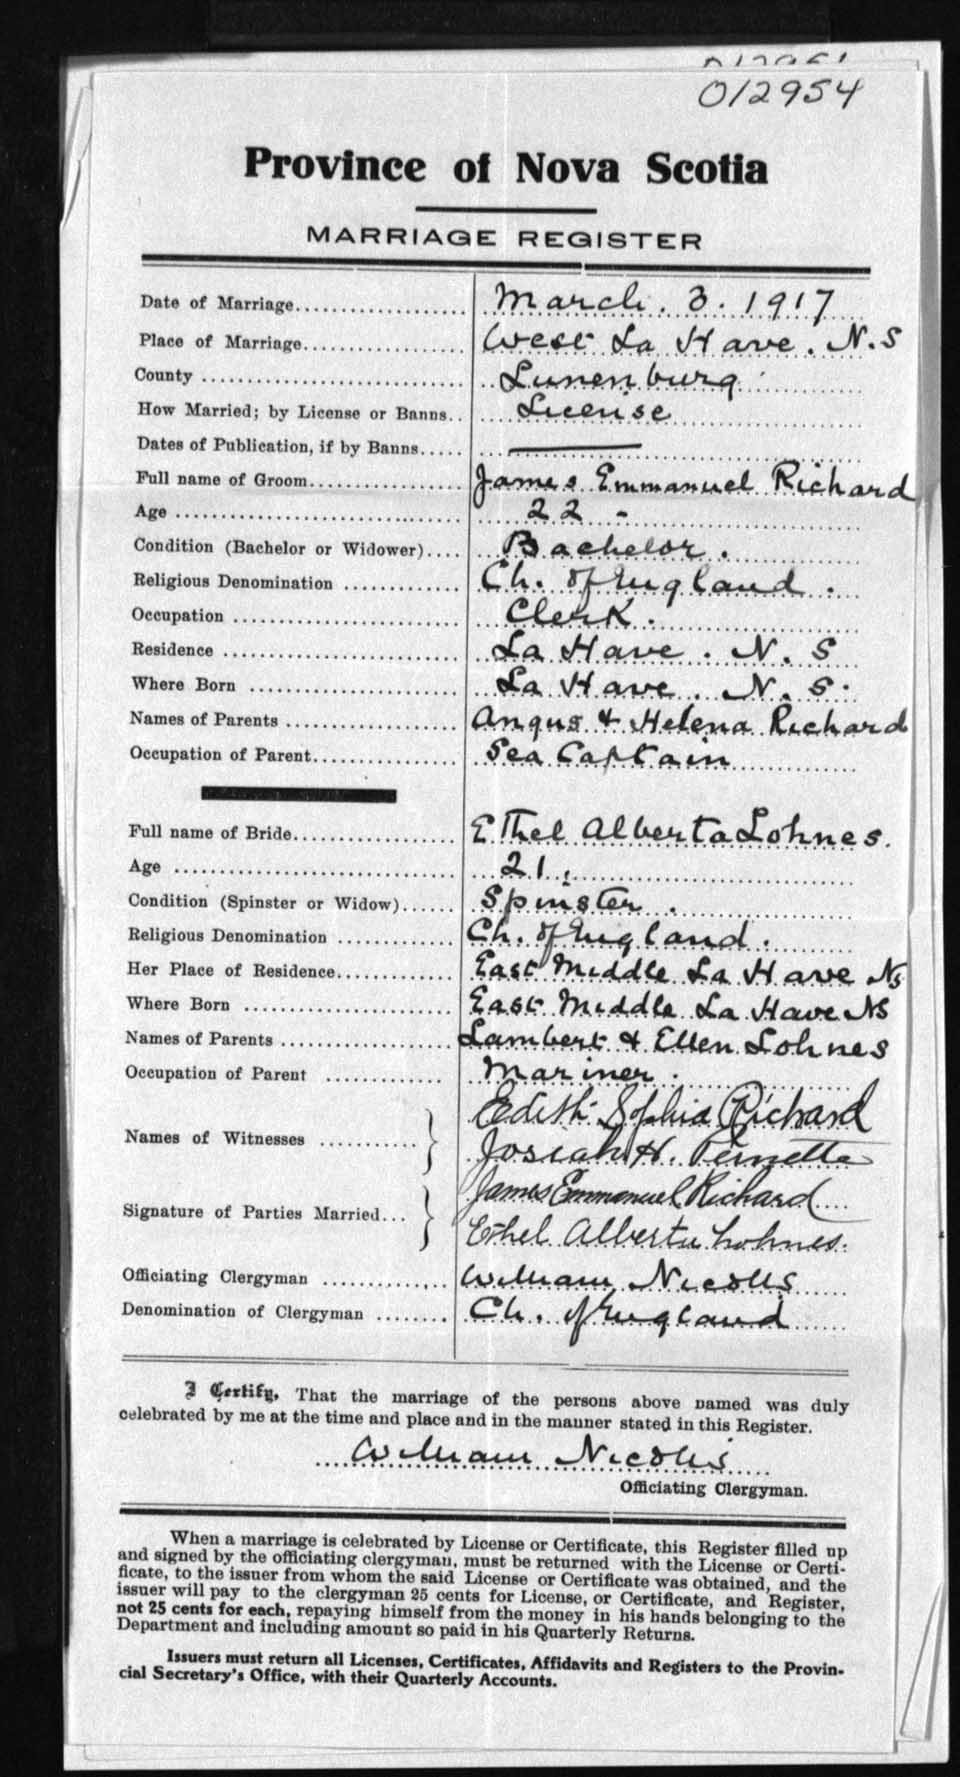 012954
Province of Nova Scotia
MARRIAGE REGISTER
Date of Marriage.................... March. 3. 1917
Place of Marriage................... West La Have. N.S
County .............................. Lunenburg
How Married; by License or Banns.. License
Dates of Publication, if by Banns..... ———
Full name of Groom.................. James Emmanuel Richard
Age .................................. 22 -
Condition (Bachelor or Widower).... Bachelor.
Religious Denomination ............. Ch. of England.
Occupation .......................... Clerk.
Residence ........................... La Have. N. S
Where Born ......................... La Have. N. S.
Names of Parents .................... Angus & Helena Richard
Occupation of Parent................. Sea Captain
Full name of Bride................... Ethel Alberta Lohnes.
Age .................................. 21.
Condition (Spinster or Widow)...... Spinster.
Religious Denomination ............. Ch. of England.
Her Place of Residence............. East Middle La Have NS
Where Born ......................... East Middle La Have NS
Names of Parents .................... Lambert & Ellen Lohnes
Occupation of Parent ............... Mariner.
Edith Sophia Richard
Names of Witnesses ...........
Josiah H. Pernette
James Emmanuel Richard
Signature of Parties Married...
Ethel Alberta Lohnes.
Officiating Clergyman .............. William Nicolls
Denomination of Clergyman ........ Ch. of England
I Certify, That the marriage of the persons above named was duly
celebrated by me at the time and place and in the manner stated in this Register.
William Nicolls
Officiating Clergyman.
When a marriage is celebrated by License or Certificate, this Register filled up
and signed by the officiating clergyman, must be returned with the License or Certi-
ficate, to the issuer from whom the said License or Certificate was obtained, and the
issuer will pay to the clergyman 25 cents for License, or Certificate, and Register,
not 25 cents for each, repaying himself from the money in his hands belonging to the
Department and including amount so paid in his Quarterly Returns.
Issuers must return all Licenses, Certificates, Affidavits and Registers to the Provin-
cial Secretary's Office, with their Quarterly Accounts.